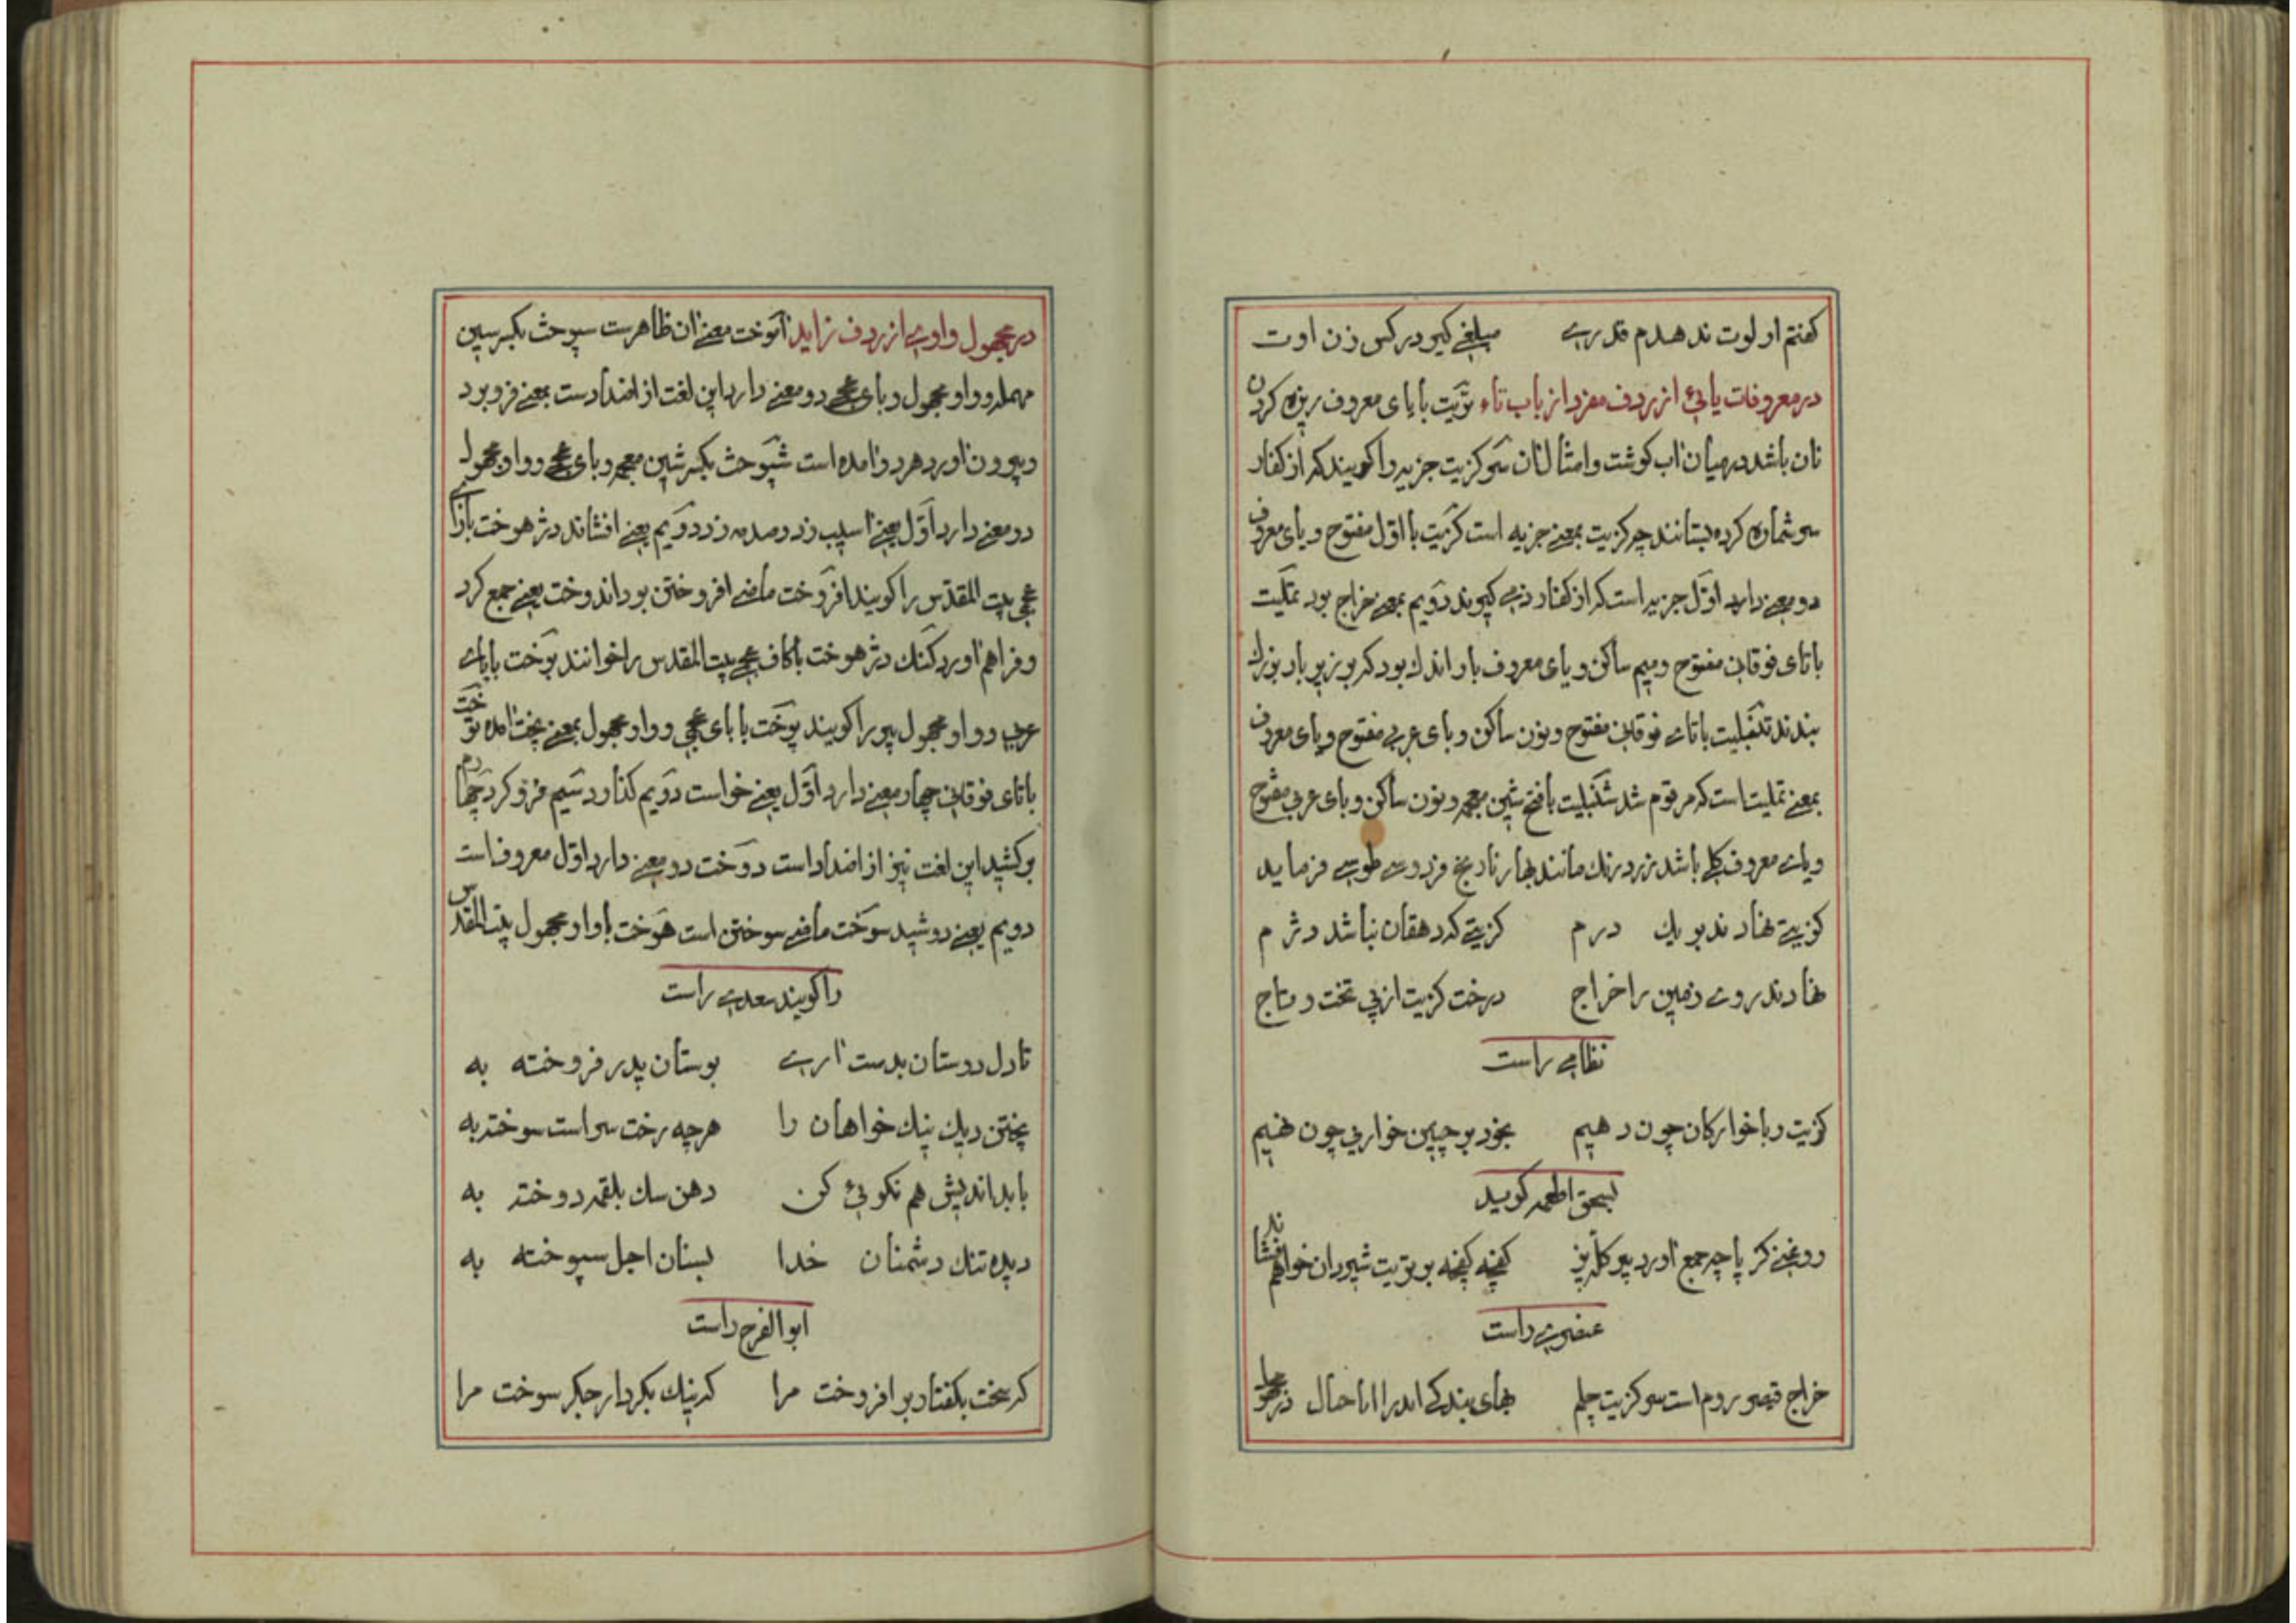 کفتم او لوت ندهدم قدرے مبلغے کیر در کس زن اوت
در معروفات یائی از ردف مفرد از باب تاء تریت بایای معروف ریزه کردن
نان باشد در میان اب کوشت و امثال ان سر کزیت جزیه را کویند که از کفار
سر شماره کرده بستانند چه کزیت بمعنے جزیه است کزیت با اول مفتوح و یای معروف
دو معنے دارد اول جزیه است که از کفار ذمے کیرند دویم بمعنے خراج بود تملیت
باتای فوقانی مفتوح و میم ساکن و یای معروف بار اندك بود که بر زبر بار بزرك
بندند تنبلیت باتاے فوقانی مفتوح و نون ساکن و بای عربی مفتوح و یای معروف
بمعنے تملیت است که مرقوم شد شنبلیت بافتح شین معجمه و نون ساکن و بای عربی مفتوح
و یاے معروف کلے باشد زرد رنك مانند بهار نارنج فردوسے طوسے فرماید
کزیتے نهادند بر یك درم کزیتے که دهقان نباشد دژم
نهادند روے زمین را خراج درخت کزیت از پی تخت و تاج
نظامے راست
کزیت رباخوارکان چون دهیم بخود بر چنین خواریی چون نهیم
بسحق اطعمه کوید
روغنے کز پاچه جمع اورد پیر کله پز کفچه کفچه بر تریت شیردان خواهم فشاند
عنصرے راست
خراج قیصر روم است سر کزیت چلم بهای بندکے
در مجهول واوے از ردف زاید اموخت معنے ان ظاهرست سپوخت بکسر سین
مهمله و واو مجهول و بای عجمے دو معنے دارد این لغت از اضدادست بمعنے فرو برد
و بیرون اورد هر دو امده است شپوخت بکسر شین معجمه و بای عجمے و واو مجهول
دو معنے دارد اول یعنے اسیب زد و صدمه زد دویم یعنے افشاند دژهوخت بازاے
عجمی بیت المقدس را کویند افروخت ماضے افروختن بود اندوخت یعنے جمع کرد
و فراهم اورد کنك دژهوخت باکاف عجمے بیت المقدس را خوانند بوخت بابای
عربے و واو مجهول پور را کویند پوخت با بای عجمی و واو مجهول بمعنے پخت امده توخت
باتای فوقانی چهار معنے دارد اول یعنے خواست دویم کذارد سیم فرو کرد چهارم
برکشید این لغت نیز از اضداد است دوخت دو معنے دارد اول معروف است
دویم یعنے دوشید سوخت ماضے سوختن است هوخت باواو مجهول بیت المقدس
را کویند سعدے راست
تا دل دوستان بدست ارے بوستان پدر فروخته به
پختن دیك نیك خواهان را هرچه رخت سراست سوخته به
با بداندیش هم نکوئی کن دهن سك بلقمه دوخته به
دیده تنك دشمنان خدا بسنان اجل سپوخته به
ابوالفرج راست
که سخت بکفتار بر افروخت مرا که نیك بکردار جکر سوخت مرا